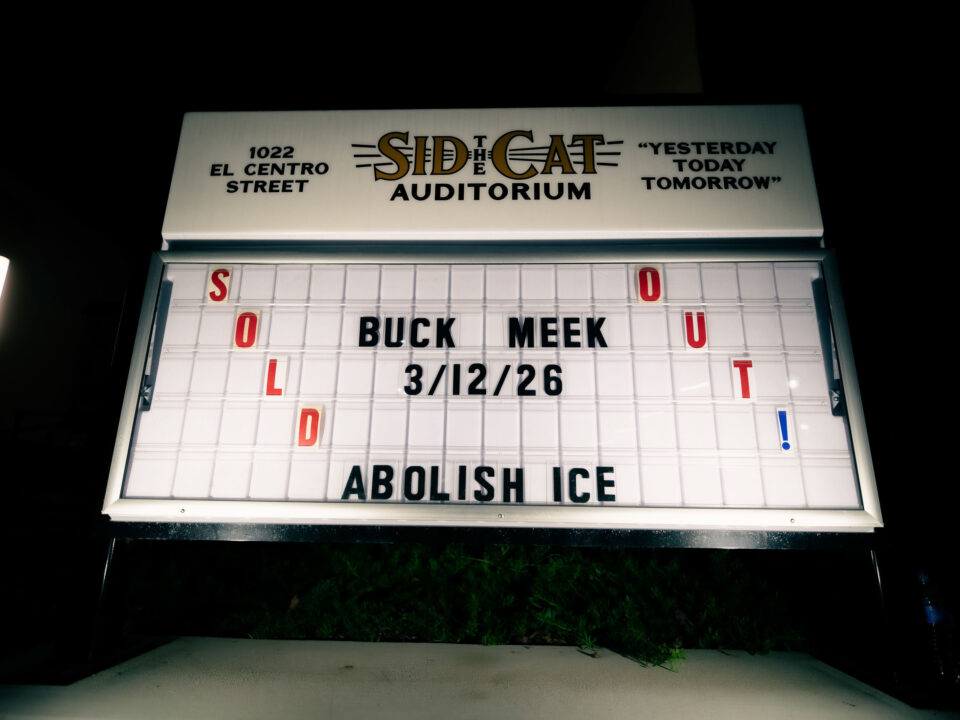 1022
EL CENTRO
STREET
SID THE CAT
AUDITORIUM
"YESTERDAY
TODAY
TOMORROW"
SOLD
BUCK MEEK
3/12/26
OUT!
ABOLISH ICE